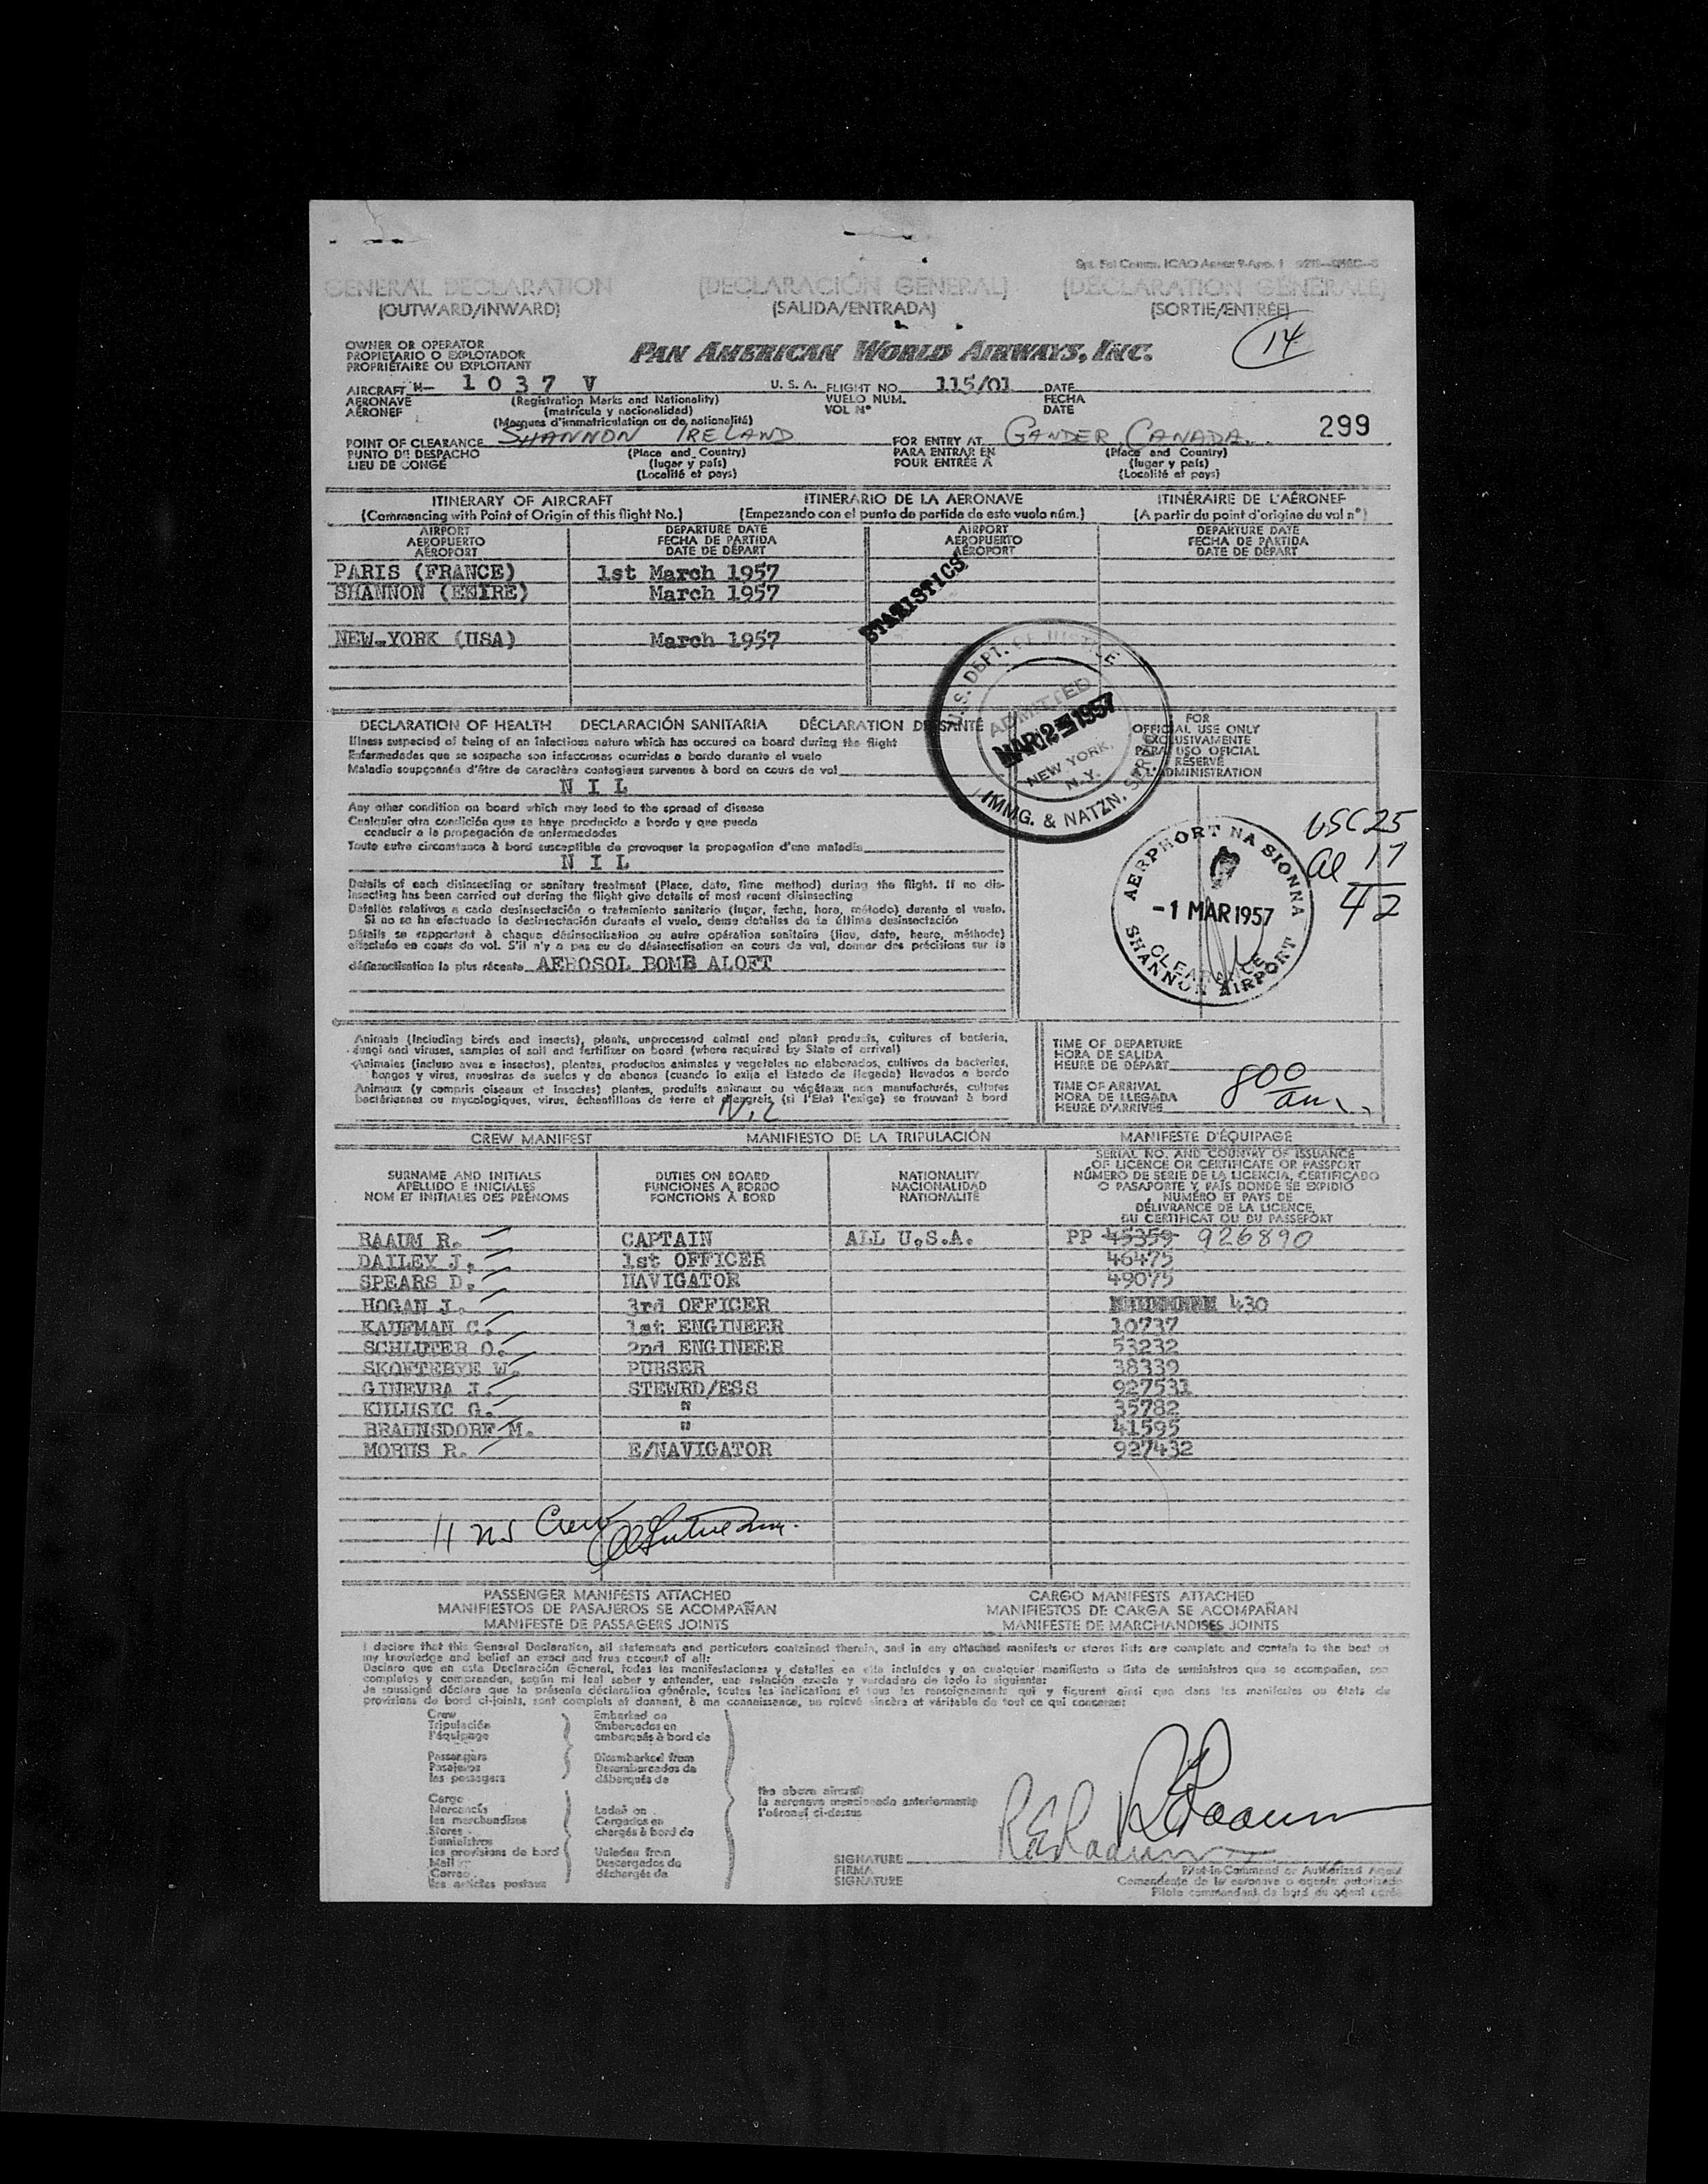 GENERAL DECLARATION (DECLARACIÓN GENERAL) (DECLARATION GÉNÉRALE)
(OUTWARD/INWARD) (SALIDA/ENTRADA) (SORTIE/ENTRÉE)
14
OWNER OR OPERATOR
PROPIETARIO O EXPLOTADOR
PROPRIÉTAIRE OU EXPLOITANT
PAN AMERICAN WORLD AIRWAYS, INC.
AIRCRAFT N- 1037 V U.S.A. FLIGHT NO. 115/01 DATE
AERONAVE (Registration Marks and Nationality) VUELO NUM. FECHA
AÉRONEF (matrícula y nacionalidad) VOL Nº DATE
(Marques d'immatriculation ou de nationalité)
299
POINT OF CLEARANCE SHANNON IRELAND FOR ENTRY AT GANDER, CANADA
PUNTO DE DESPACHO (Place and Country) PARA ENTRAR EN (Place and Country)
LIEU DE CONGÉ (lugar y país) POUR ENTRÉE À (lugar y país)
(Localité et pays) (Localité et pays)
ITINERARY OF AIRCRAFT ITINERARIO DE LA AERONAVE ITINÉRAIRE DE L'AÉRONEF
(Commencing with Point of Origin of this flight No.) (Empezando con el punto de partida de este vuelo núm.) (A partir du point d'origine du vol nº)
AIRPORT DEPARTURE DATE AIRPORT DEPARTURE DATE
AEROPUERTO FECHA DE PARTIDA AEROPUERTO FECHA DE PARTIDA
AÉROPORT DATE DE DÉPART AÉROPORT DATE DE DÉPART
PARIS (FRANCE) 1st March 1957
SHANNON (EEIRE) March 1957
STATISTICS
NEW-YORK (USA) March 1957
U.S. DEPT. OF JUSTICE
ADMITTED
MAR 2 1957
NEW YORK, N.Y.
IMMG. & NATZN. SERV.
DECLARATION OF HEALTH DECLARACIÓN SANITARIA DÉCLARATION DE SANTÉ
Illness suspected of being of an infectious nature which has occured on board during the flight
Enfermedades que se sospecha son infecciosas ocurridas a bordo durante el vuelo
Maladie soupçonnée d'être de caractère contagieux survenue à bord en cours de vol
NIL
FOR
OFFICIAL USE ONLY
EXCLUSIVAMENTE
PARA USO OFICIAL
RÉSERVÉ
À L'ADMINISTRATION
Any other condition on board which may lead to the spread of disease
Cualquier otra condición que se haya producido a bordo y que pueda
conducir a la propagación de enfermedades
Toute autre circonstance à bord susceptible de provoquer la propagation d'une maladie
NIL
USC 25
al 17
42
AERPHORT NA SIONNA
-1 MAR 1957
CLEARANCE
SHANNON AIRPORT
Details of each disinsecting or sanitary treatment (Place, date, time method) during the flight. If no dis-
insecting has been carried out during the flight give details of most recent disinsecting
Detalles relativos a cada desinsectación o tratamiento sanitario (lugar, fecha, hora, método) durante el vuelo.
Si no se ha efectuado la desinsectación durante el vuelo, dense detalles de la última desinsectación
Détails se rapportant à chaque désinsectisation ou autre opération sanitaire (lieu, date, heure, méthode)
effectuée en cours de vol. S'il n'y a pas eu de désinsectisation en cours de vol, donner des précisions sur la
désinsectisation la plus récente AEROSOL BOMB ALOFT
Animals (Including birds and insects), plants, unprocessed animal and plant products, cultures of bacteria,
fungi and viruses, samples of soil and fertilizer on board (where required by State of arrival)
Animales (incluso aves e insectos), plantas, productos animales y vegetales no elaborados, cultivos de bacterias,
hongos y virus, muestras de suelos y de abonos (cuando lo exija el Estado de llegada) llevados a bordo
Animaux (y compris oiseaux et insectes) plantes, produits animaux ou végétaux non manufacturés, cultures
bactériennes ou mycologiques, virus, échantillons de terre et d'engrais (si l'Etat l'exige) se trouvant à bord
Nil
TIME OF DEPARTURE
HORA DE SALIDA
HEURE DE DÉPART
TIME OF ARRIVAL
HORA DE LLEGADA
HEURE D'ARRIVÉE
800 am
CREW MANIFEST MANIFIESTO DE LA TRIPULACIÓN MANIFESTE D'ÉQUIPAGE
SURNAME AND INITIALS
APELLIDO E INICIALES
NOM ET INITIALES DES PRÉNOMS
DUTIES ON BOARD
FUNCIONES A BORDO
FONCTIONS À BORD
NATIONALITY
NACIONALIDAD
NATIONALITÉ
SERIAL NO. AND COUNTRY OF ISSUANCE
OF LICENCE OR CERTIFICATE OR PASSPORT
NÚMERO DE SERIE DE LA LICENCIA, CERTIFICADO
O PASAPORTE Y PAÍS DONDE SE EXPIDIÓ
NUMÉRO ET PAYS DE
DÉLIVRANCE DE LA LICENCE,
DU CERTIFICAT OU DU PASSEPORT
RAAUM R. CAPTAIN ALL U.S.A. PP 45359 926890
DAILEY J. 1st OFFICER 46475
SPEARS D. NAVIGATOR 49075
HOGAN J. 3rd OFFICER 430
KAUFMAN C. 1st ENGINEER 10737
SCHLUTER O. 2nd ENGINEER 53232
SKOFTEBYE W. PURSER 38339
GINEVRA J. STEWRD/ESS 927531
KULUSIC G. " 35782
BRAUNSDORF M. " 41595
MORUS R. E/NAVIGATOR 927432
11 ns Crew
PASSENGER MANIFESTS ATTACHED CARGO MANIFESTS ATTACHED
MANIFIESTOS DE PASAJEROS SE ACOMPAÑAN MANIFIESTOS DE CARGA SE ACOMPAÑAN
MANIFESTE DE PASSAGERS JOINTS MANIFESTE DE MARCHANDISES JOINTS
I declare that this General Declaration, all statements and particulars contained therein, and in any attached manifests or stores lists are complete and contain to the best of
my knowledge and belief an exact and true account of all:
Declaro que en esta Declaración General, todas las manifestaciones y detalles en ella incluídos y en cualquier manifiesto o lista de suministros que se acompañan, son
completos y comprenden, según mi leal saber y entender, una relación exacta y verdadera de todo lo siguiente:
Je soussigné déclare que la présente déclaration générale, toutes les indications et tous les renseignements qui y figurent ainsi que dans les manifestes ou états de
provisions de bord ci-joints, sont complets et donnent, à ma connaissance, un relevé sincère et véritable de tout ce qui concerne:
Crew
Tripulación
l'équipage
Passengers
Pasajeros
les passagers
Cargo
Mercancía
les marchandises
Stores
Suministros
les provisions de bord
Mail
Correo
les articles postaux
Embarked on
Embarcados en
embarqués à bord de
Disembarked from
Desembarcados de
débarqués de
Laded on
Cargados en
chargés à bord de
Unladen from
Descargados de
déchargés de
the above aircraft
la aeronave mencionada anteriormente
l'aéronef ci-dessus
SIGNATURE
FIRMA
SIGNATURE
R E Raaum
Pilot-in-Command or Authorized Agent
Comandante de la aeronave o agente autorizado
Pilote commandant de bord ou agent agréé